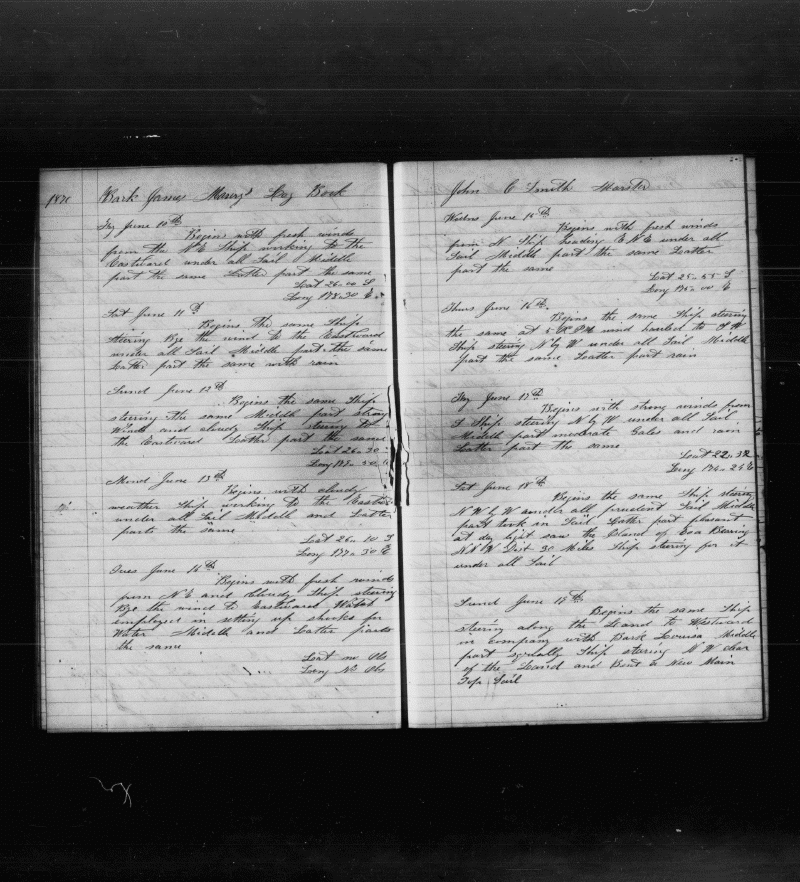 1870
Bark James Maury's Log Book
Fry June 10th
Begins with fresh winds
from the N E Ship working to the
Eastward under all Sail Middle
part the same Latter part the same
Laat 26-00 S
Long 178-30 E
Sat June 11th
Begins the same Ship
steering Bye the wind to the Eastward
under all Sail Middle part the same
Latter part the same with rain
Sund June 12th
Begins the same Ship
steering the same Middle part strong
Winds and cloudy Ship steering to
the Eastward Latter part the same
Laat 26-30
Long 177-50
Mond June 13th
Begins with cloudy
weather Ship working to the Eastw
under all Sail Middell and Latter
parts the same
Laat 26-10 S
Long 177-30 E
Tues June 14th
Begins with fresh winds
from N E and Cloudy Ship steering
Bye the wind to Eastward Watch
employed in setting up shooks for
Water Middle and Latter parts
the same
Laat no Obs
Long No Obs
John C Smith Marster
Wedns June 15th
Begins with fresh winds
from N Ship heading E N E under all
Sail Middle part the same Latter
part the same
Laat 25-55 S
Long 175-00 E
Thurs June 16th
Begins the same Ship steering
the same at 5 P M wind hauled to S W
Ship steering N by W under all Sail Middle
part the same Latter part rain
Fry June 17th
Begins with strong winds from
S Ship steering N by W under all Sail
Middle part moderate Gales and rain
Latter part the same
Laat 22-32
Long 174-25 E
Sat June 18th
Begins the same Ship steering
N W by W under all prudent Sail Middle
part took in Sail Latter part pleasant
at day light saw the Island of Eoa Bearing
N N W Dist 30 Miles Ship steering for it
under all Sail
Sund June 19th
Begins the same Ship
steering along the Land to Westward
in company with Bark Lousa Middle
part squally Ship steering N W clear
of the Land and Bent a New Main
Top Sail